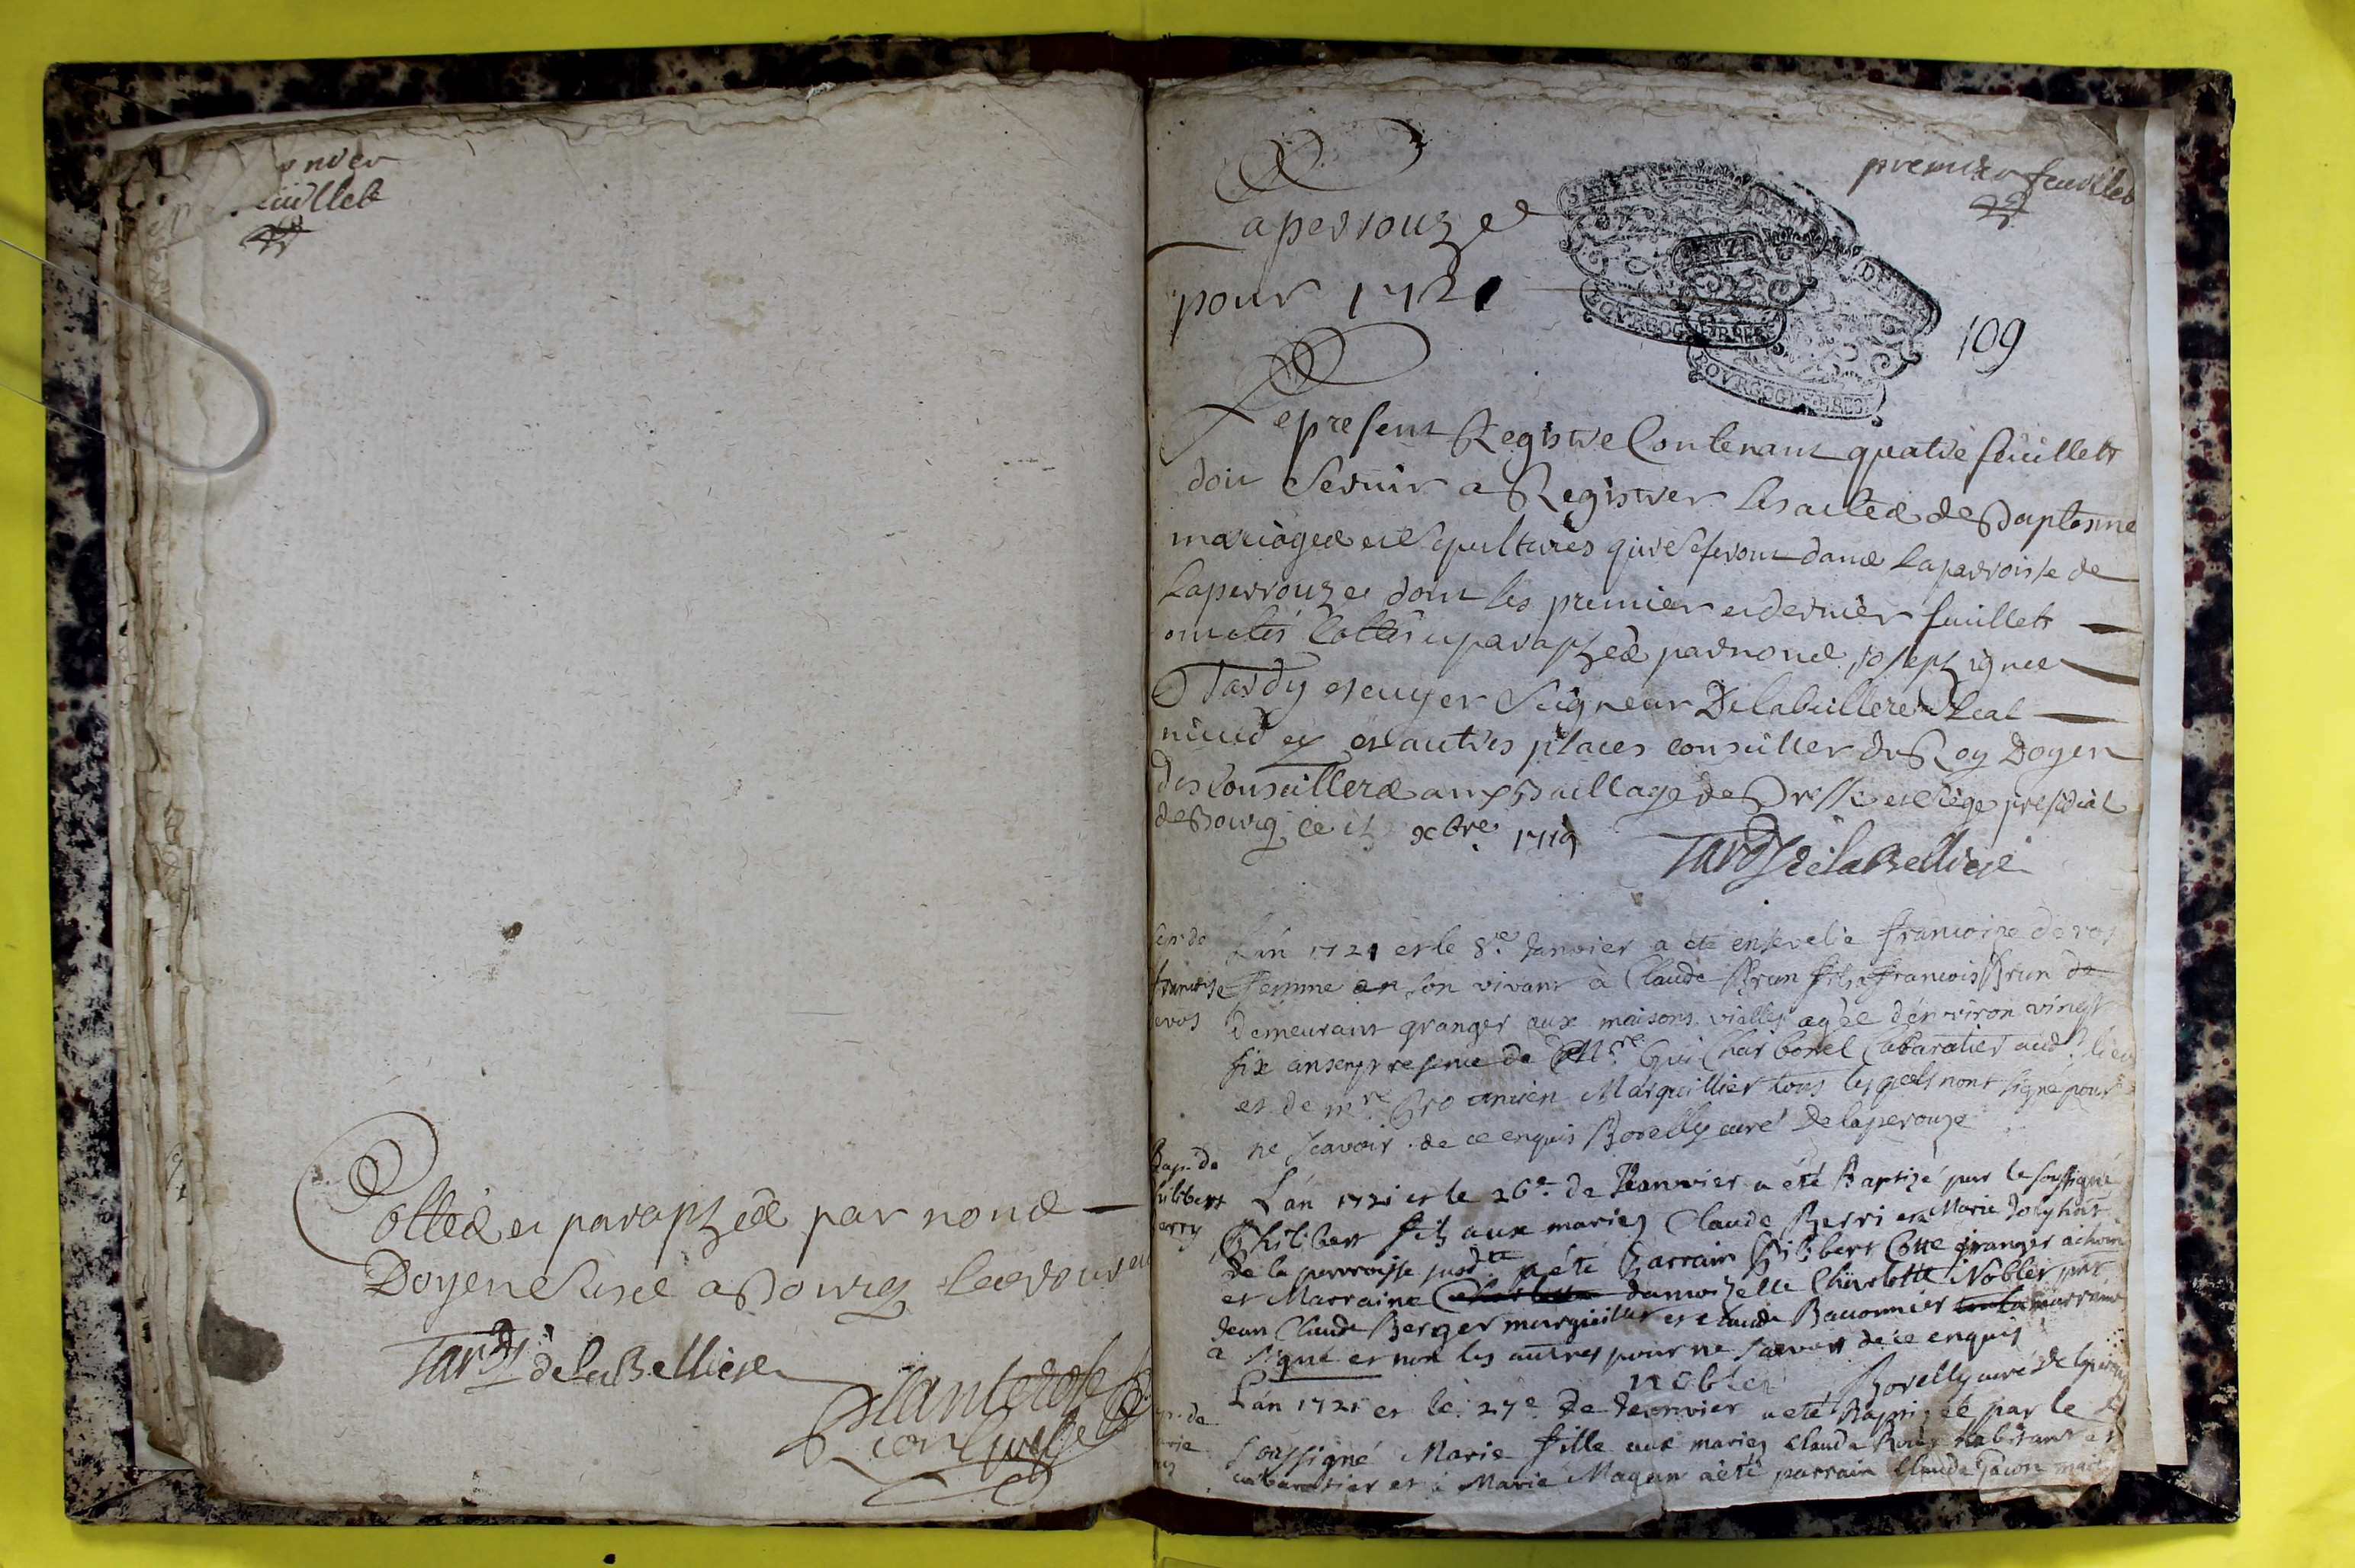 feuillet
Cottéé et paraphéé par nous
Doyen susd a Bourg
Tardy de la Belliere
premier feuillet
Laperrouze
pour 1721
109
Le present Registre Contenant quatre feuillets
doit servir a Registrer les actes de Baptesme
mariages et sepultures qui se feront dans la parroisse de
Laperrouze dont les premier et dernier feuillets
ont estés Cottés et paraphés par nous joseph ignace
Tardy escuyer seigneur De la belliere
et autres places conseiller du Roy Doyen
des Conseillers aux Baillage de Bresse et siege presidial
de Bourg ce xbre 1719
Tardy de la Belliere
francoise
evos
Lan 1721 et le 8.e Janvier a eté ensevelie francoise devos
femme en son vivant à Claude Brun fils a francois Brun
demeurant granger aux maisons vielles agée d'environ vingt
six ans en presence de M.re Gui Charbonel Cabaratier aud. lieu
et de m.re Gro ancien Marguillier tous lesquels nont signé pour
ne scavoir de ce enquis Borelly curé de laperouze
Bap. de
hilibert
erry
Lan 1721 et le 26e. de Jeanvier a eté Baptizé par le soussigné
Philibert fils aux mariez Claude Berri et a Marie
de la parroisse susdtte a eté Parrain Philibert Cotte granger
et Marraine damoizelle Charlotte Nobler
Jean Claude Berger marguillier et Claude Bauonnier marraine
a signé et non les autres pour ne scavoir de ce enquis
nobler
Borelly curé de
p. de
rie
Lan 1721 et le 27e. de Jeanvier a eté Baptizéé par le
soussigné Marie fille aux mariez Claude habitant et
cabaratier et à Marie Magnin a eté parrain Claude